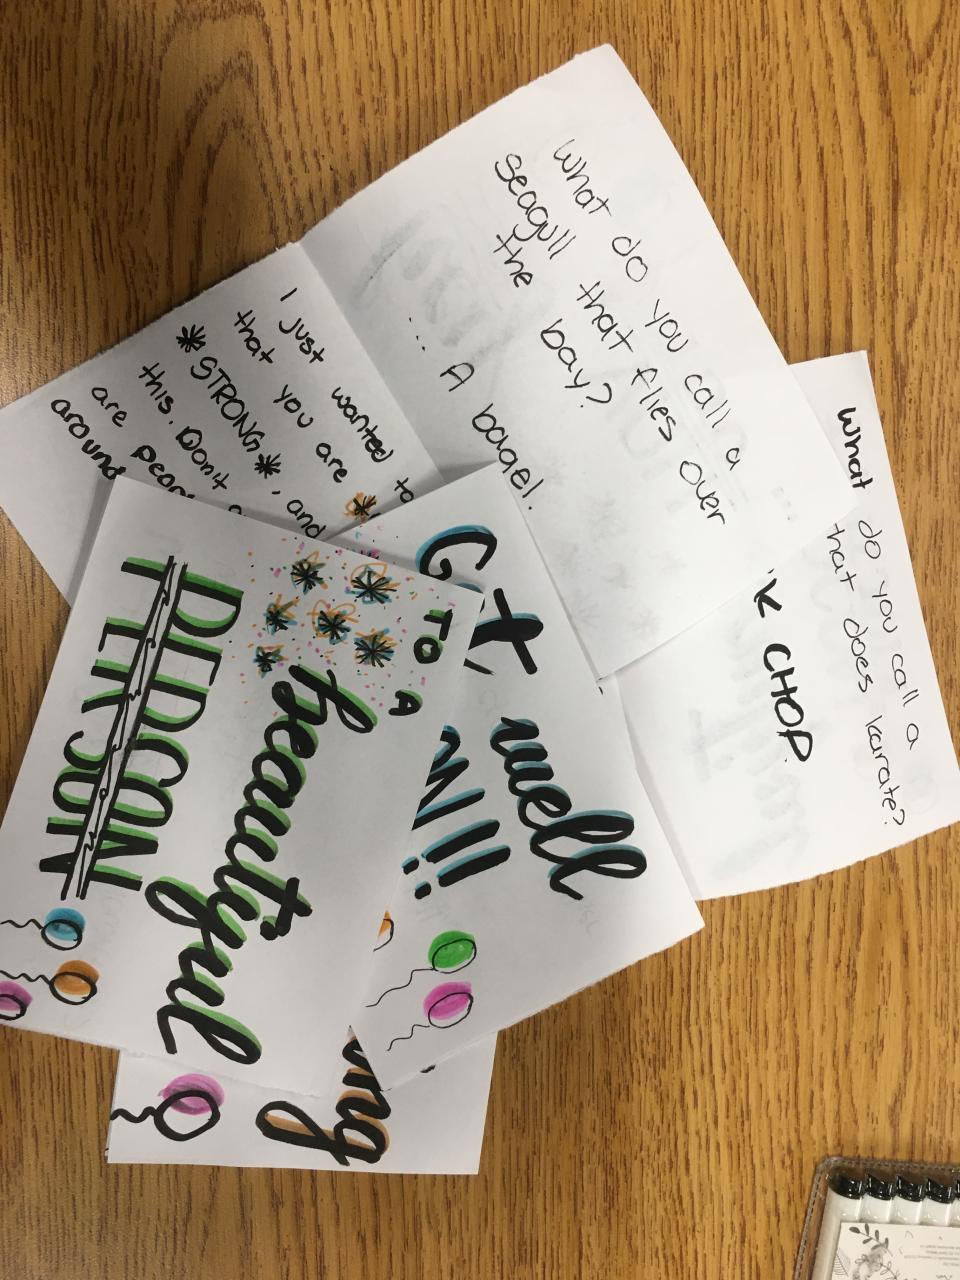 What do you call a
seagull that flies over
the bay?
... A bagel!
I just wanted to
that you are
*STRONG*, and
this. Don't
are
around
What do you call a
that does karate?
K CHOP.
Get well
!!!
TO A
beautiful
PERSON